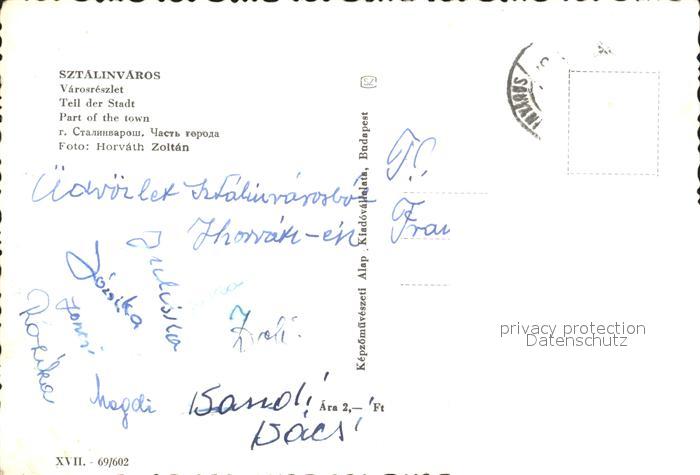 SZTÁLINVÁROS
Városrészlet
Teil der Stadt
Part of the town
г. Сталинварош. Часть города
Foto: Horváth Zoltán
Képzőművészeti Alap Kiadóvállalata, Budapest
Üdvözlet Sztálinvárosból
Horváth-ék
T.!
Frau
Józsika
Juliska
Jancsi
Rózsika
Zsolt
Magdi
Bandi
bácsi
Ára 2,— Ft
XVII. - 69/602
privacy protection
Datenschutz